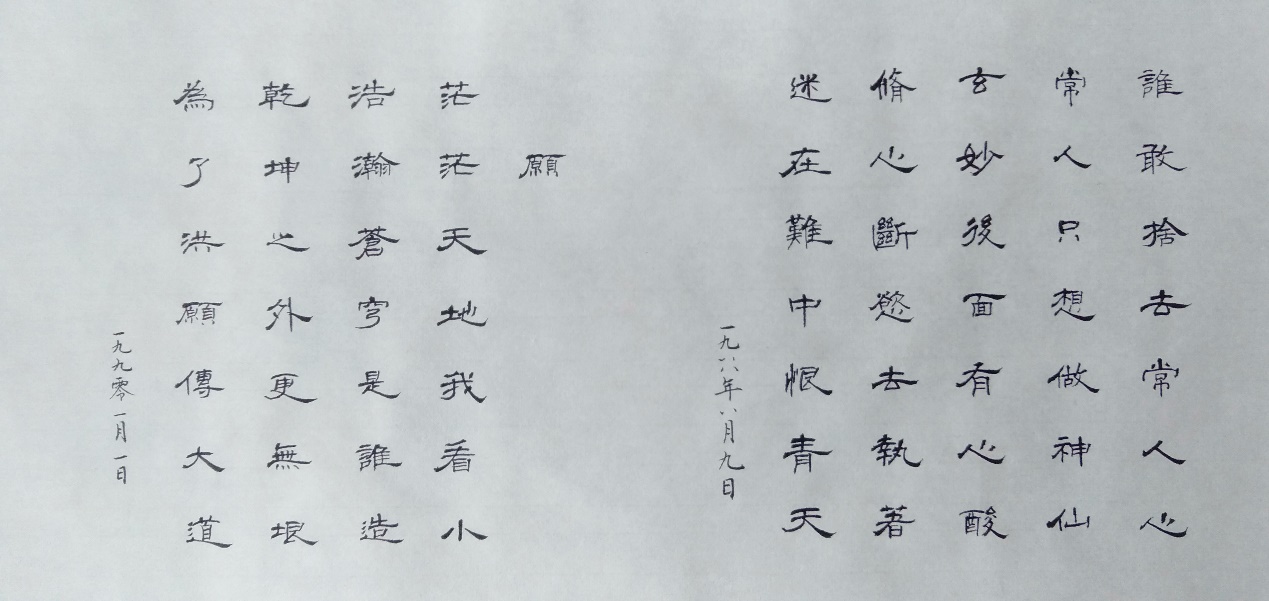 誰敢捨去常人心
常人只想做神仙
玄妙後面有心酸
脩心斷慾去執著
迷在難中恨青天
一九八六年八月九日
願
茫茫天地我看小
浩瀚蒼穹是誰造
乾坤之外更無垠
為了洪願傳大道
一九九零一月一日